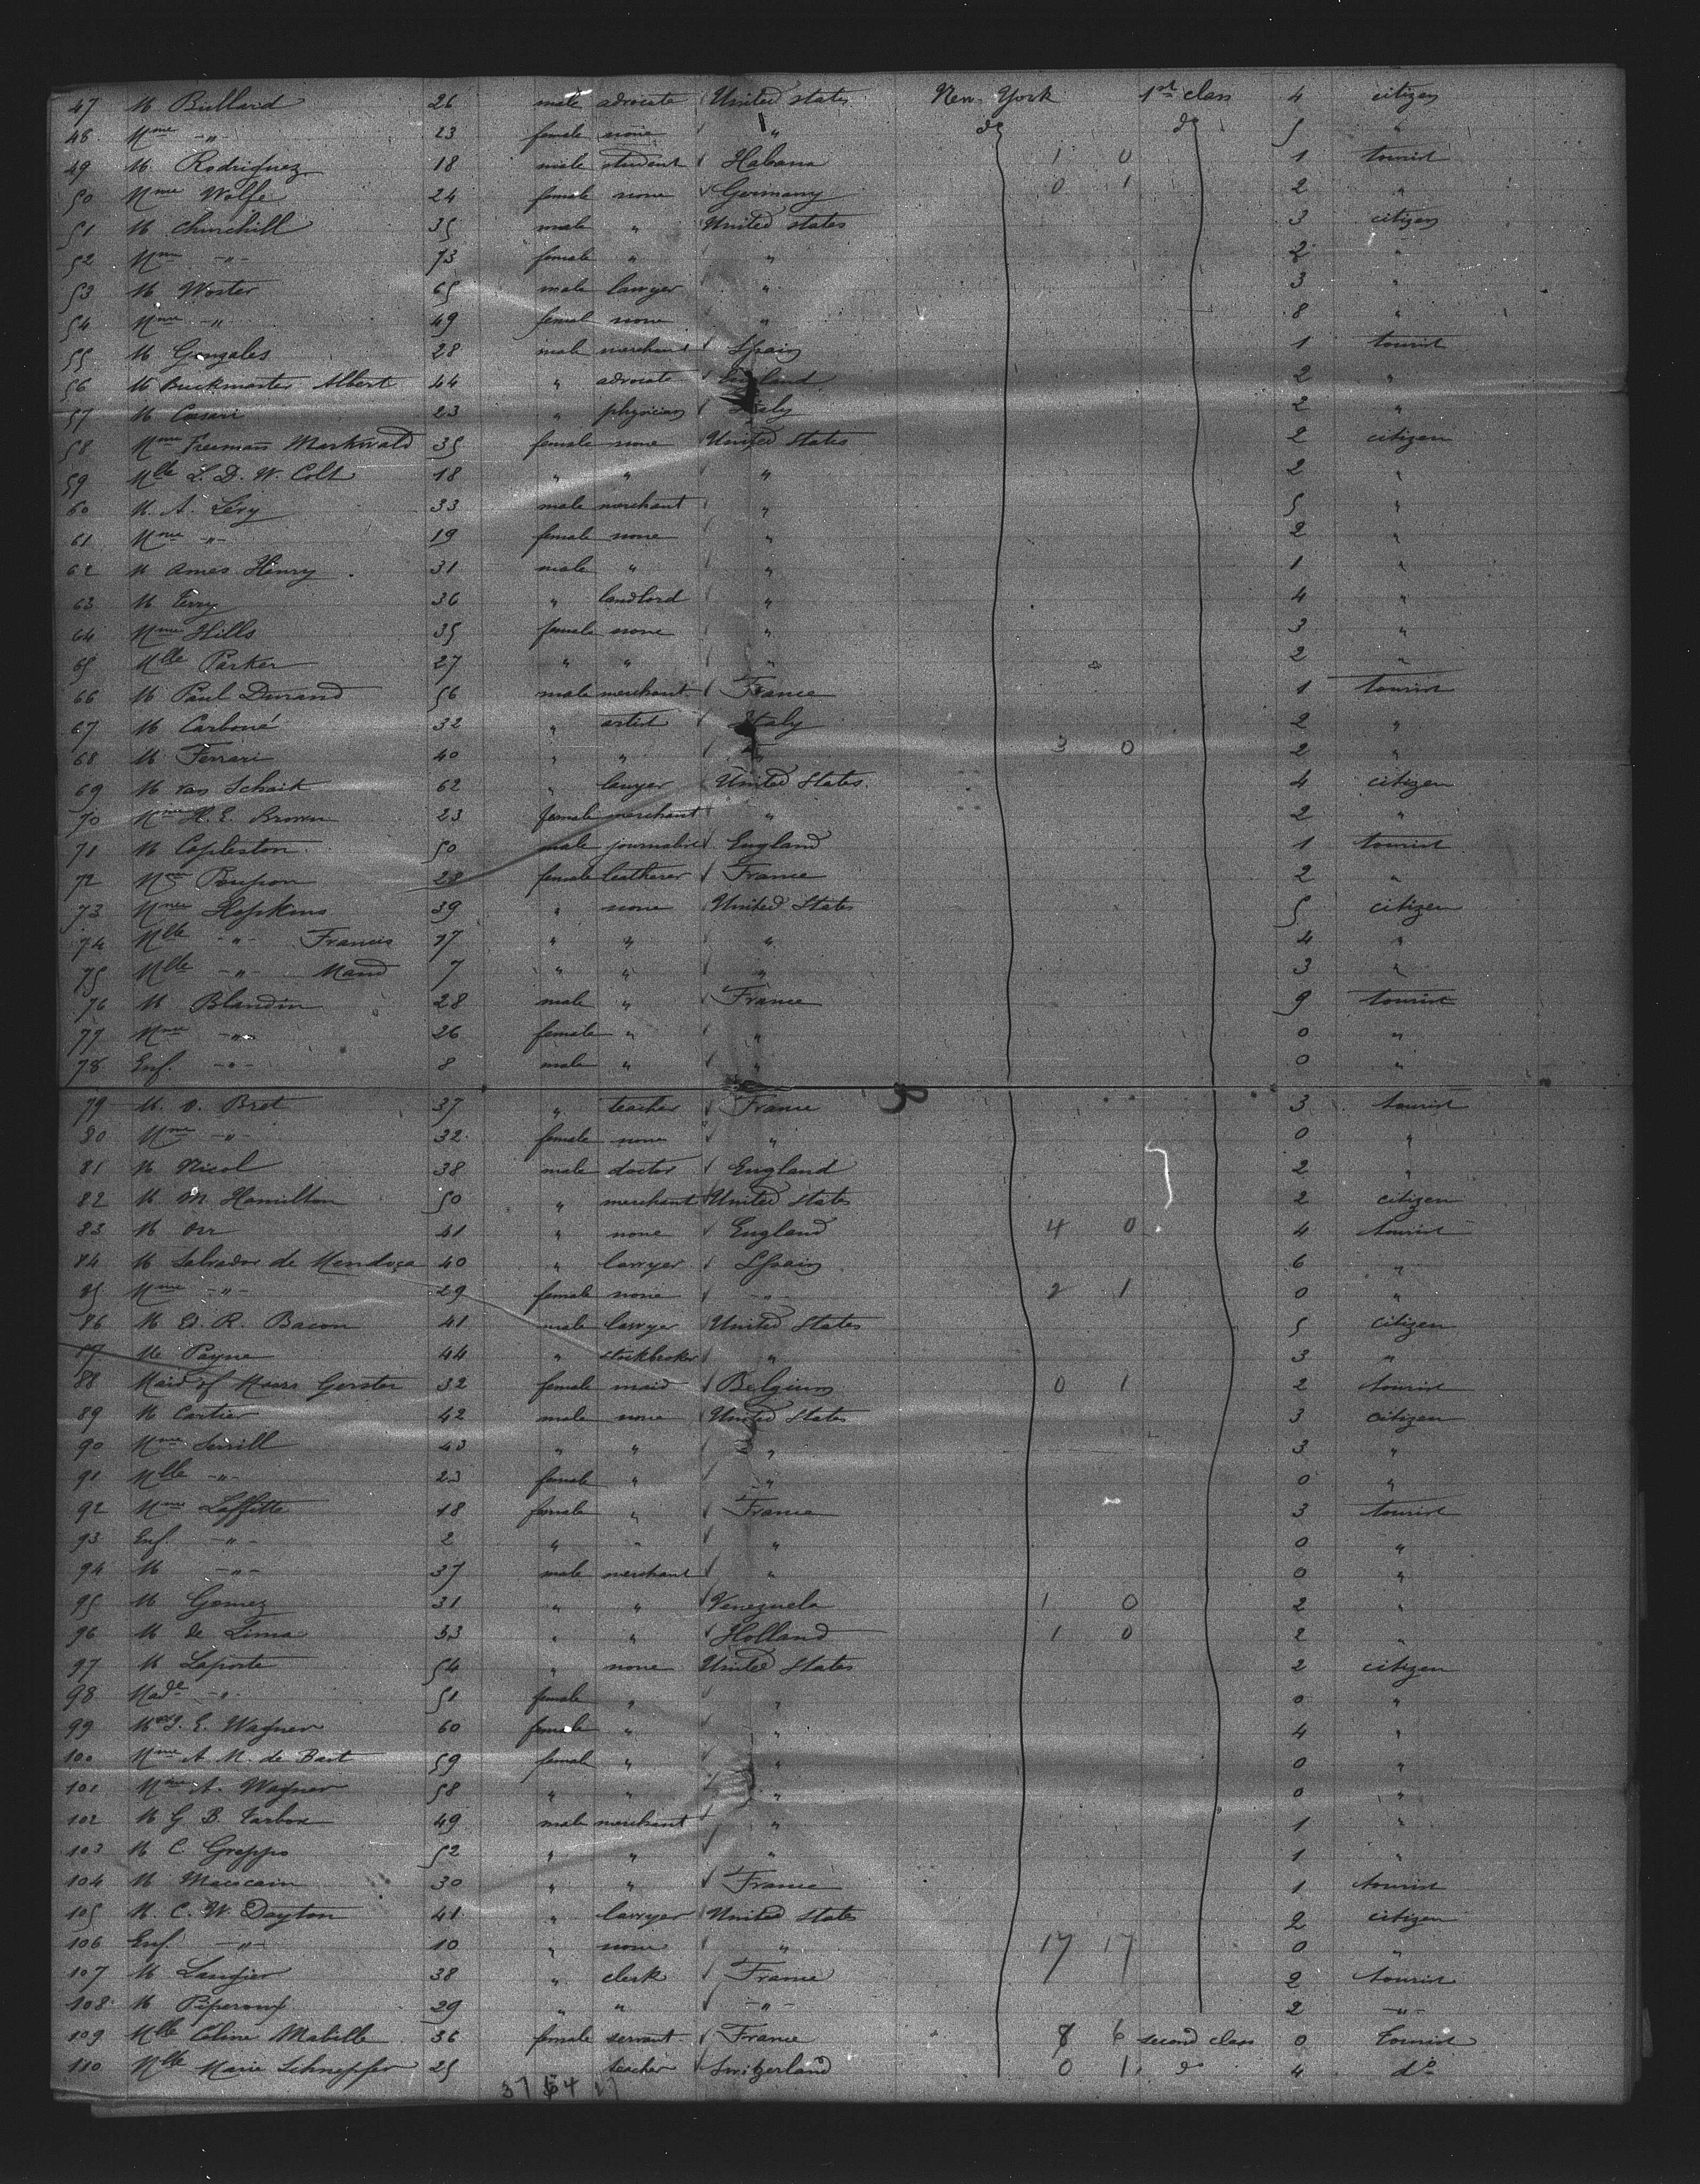 47 M Bullard 26 male advocate United states New York 1st class 4 citizen
48 Mme -"- 23 female none " do do 5 "
49 M. Rodriguez 18 male student Habana 1 0 1 tourist
50 Mme Wolfe 24 female none Germany 0 1 2 "
51 M Churchill 35 male " United states 3 citizen
52 Mme -"- 73 female " " 2 "
53 M Woster 65 male lawyer " 3 "
54 Mme -"- 49 femal none " 8 "
55 M Gonzales 28 male merchant Spain 1 tourist
56 M Buckmaster Albert 44 " advocate England 2 "
57 M Caesari 23 " physician Italy 2 "
58 Mme Freemann Markwald 35 female none United States 2 citizen
59 Mlle L. D. W. Colt 18 " " " 2 "
60 M. A. Lévy 33 male merchant " 5 "
61 Mme -"- 19 female none " 2 "
62 M Ames Henry 31 male " " 1 "
63 M Terry 36 " landlord " 4 "
64 Mme Hills 35 female none " 3 "
65 Mlle Parker 27 " " " 2 "
66 M Paul Durand 56 male merchant France 1 tourist
67 M Carboné 32 " artist Italy 2 "
68 M Ferrari 40 " " " 3 0 2 "
69 M van Schaik 62 " lawyer United States 4 citizen
70 Mme H. E. Brown 23 female merchant " 2 "
71 M Copleston 50 male journalist England 1 tourist
72 Me Poupon 28 female leatherer France 2 "
73 Mme Hopkins 39 " none United States 5 citizen
74 Mlle -"- Francis 17 " " " 4 "
75 Mlle -"- Maud 7 " " " 3 "
76 M Blandin 28 male " France 9 tourist
77 Mme -"- 26 female " " 0 "
78 Enf. -"- 8 male " " 0 "
79 M. O. Bret 37 " teacher France 3 tourist
80 Mme -"- 32 female none " 0 "
81 M Nicol 38 male doctor England 2 "
82 M. M. Hamilton 50 " merchant United States 2 citizen
83 M Orr 41 " none England 4 0 4 tourist
84 M Salvador de Mendoça 40 " lawyer Spain 6 "
85 Mme -"- 29 female none -"- 2 1 0 "
86 M Ed. R. Bacon 41 male lawyer United States 5 citizen
87 M Payne 44 " stockbroker " 3 "
88 Maid of Gerster 32 female maid Belgium 0 1 2 tourist
89 M Cartier 42 male none United States 3 citizen
90 Mme 43 " " " 3 "
91 Mlle -"- 23 female " " 0 "
92 Mme Laffitte 18 female " France 3 tourist
93 Enf. -"- 2 " " " 0 "
94 M -"- 37 male merchant " 0 "
95 M Gomez 31 " " Venezuela 1 0 2 "
96 M de Lima 53 " " Holland 1 0 2 "
97 M Laporte 54 " none United States 2 citizen
98 Made -"- 51 female " " 0 "
99 E. Wagner 60 female " " 4 "
100 Mme A M. de Bast 59 female " " 0 "
101 Mme A. Wagner 58 " " " 0 "
102 M G B. Tarbox 49 male merchant " 1 "
103 M C. Greppo 52 " " " 1 "
104 M 30 " " France 1 tourist
105 M. C. W. Dayton 41 " lawyer United States 2 citizen
106 Enf. -"- 10 " none " 17 17 0 "
107 M Laugier 38 " clerk France 2 tourist
108 M Piperoux 29 " " -"- 2 -"-
109 Mlle Céline Mabille 36 female servant France 8 6 second class 0 tourist
110 Mlle Marie Schnepfer 25 teacher Switzerland 0 1 do 4 do